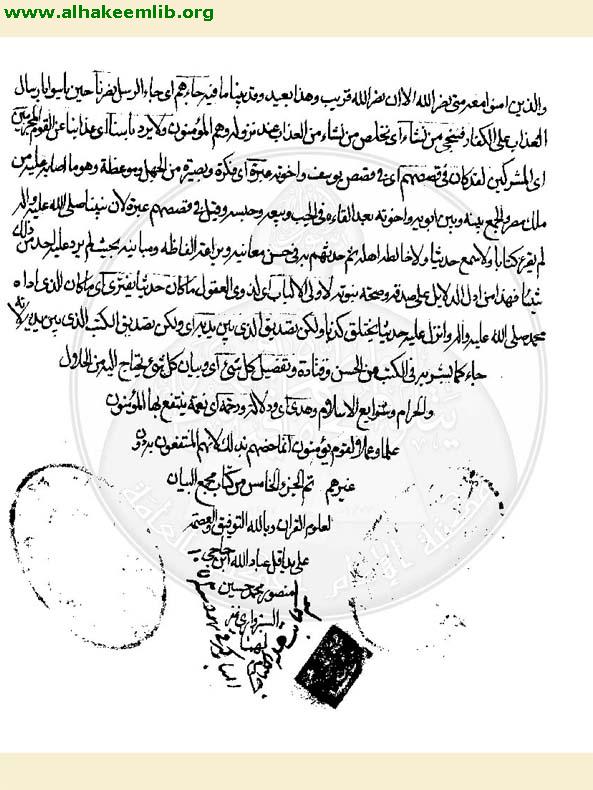 www.alhakeemlib.org
والذين امنوا معه متى نصر الله الا ان نصر الله قريب وهذا بعيد وقد بينا ما فيه جاءهم اى جاء الرسل نصرنا حين يأسوا بارسال
العذاب على الكفار فنجى من نشاء اى نخلص من نشاء من العذاب عند نزوله وهم المؤمنون ولا يرد باسنا اى عذابنا عن القوم المجرمين
اى المشركين لقد كان فى قصصهم اى فى قصص يوسف واخوته عبرة اى فكرة وبصيرة من الجهل وموعظة وهو ما اصابه عليه من
ملك مصر والجمع بينه وبين ابويه واخوته بعد القاءه فى الجب وبيعه وحبسه وقيل فى قصصهم عبرة لان نبينا صلى الله عليه واله
لم يقرء كتابا ولا سمع حديثا ولا خالط اهله ثم حدثهم به فى حسن معانيه وبراعة الفاظه ومبانيه بحيث لم يرد عليه احد من ذلك
شيئا فهذا من ادل الدلايل على صدقه وصحة نبوته لاولى الالباب اى لذوى العقول ما كان حديثا يفترى اى ما كان الذى اداه
محمد صلى الله عليه واله وانزل عليه حديثا يختلق كذبا ولكن تصديق الذى بين يديه اى ولكن تصديق الكتب الذى بين يديه لانه
جاء كما بشر به فى الكتب عن الحسن وقتادة وتفصيل كل شىء اى وبيان كل شىء يحتاج اليه من الحلال
والحرام وشرايع الاسلام وهدى اى ودلالة ورحمة اى نعمة ينتفع بها المؤمنون
علما وعملا لقوم يؤمنون انما خصهم بذلك لانهم المنتفعون به دون
غيرهم تم الجزء الخامس من كتاب مجمع البيان
لعلوم القران وبالله التوفيق والعصمة
على يد اقل عباد الله ابن حاجى
منصور محمد حسين
السبزوارى